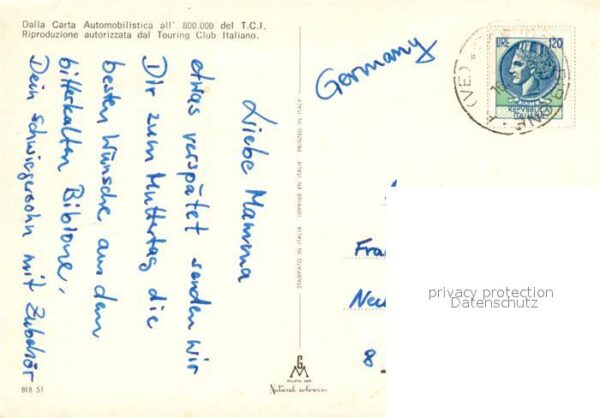 Dalla Carta Automobilistica all' 800.000 del T.C.I.
Riproduzione autorizzata dal Touring Club Italiano.
Liebe Mamma
etwas verspätet senden wir
Dir zum Muttertag die
besten Wünsche aus dem
bitterkalten Bibione.
Dein Schwiegersohn mit Zubehör
BIB 51
STAMPATO IN ITALIA IMPRIMÉ EN ITALIE PRINTED IN ITALY
MILANO
Natural colours
Germany
LIRE 120
(VE)
Fra
Neu
8
privacy protection
Datenschutz